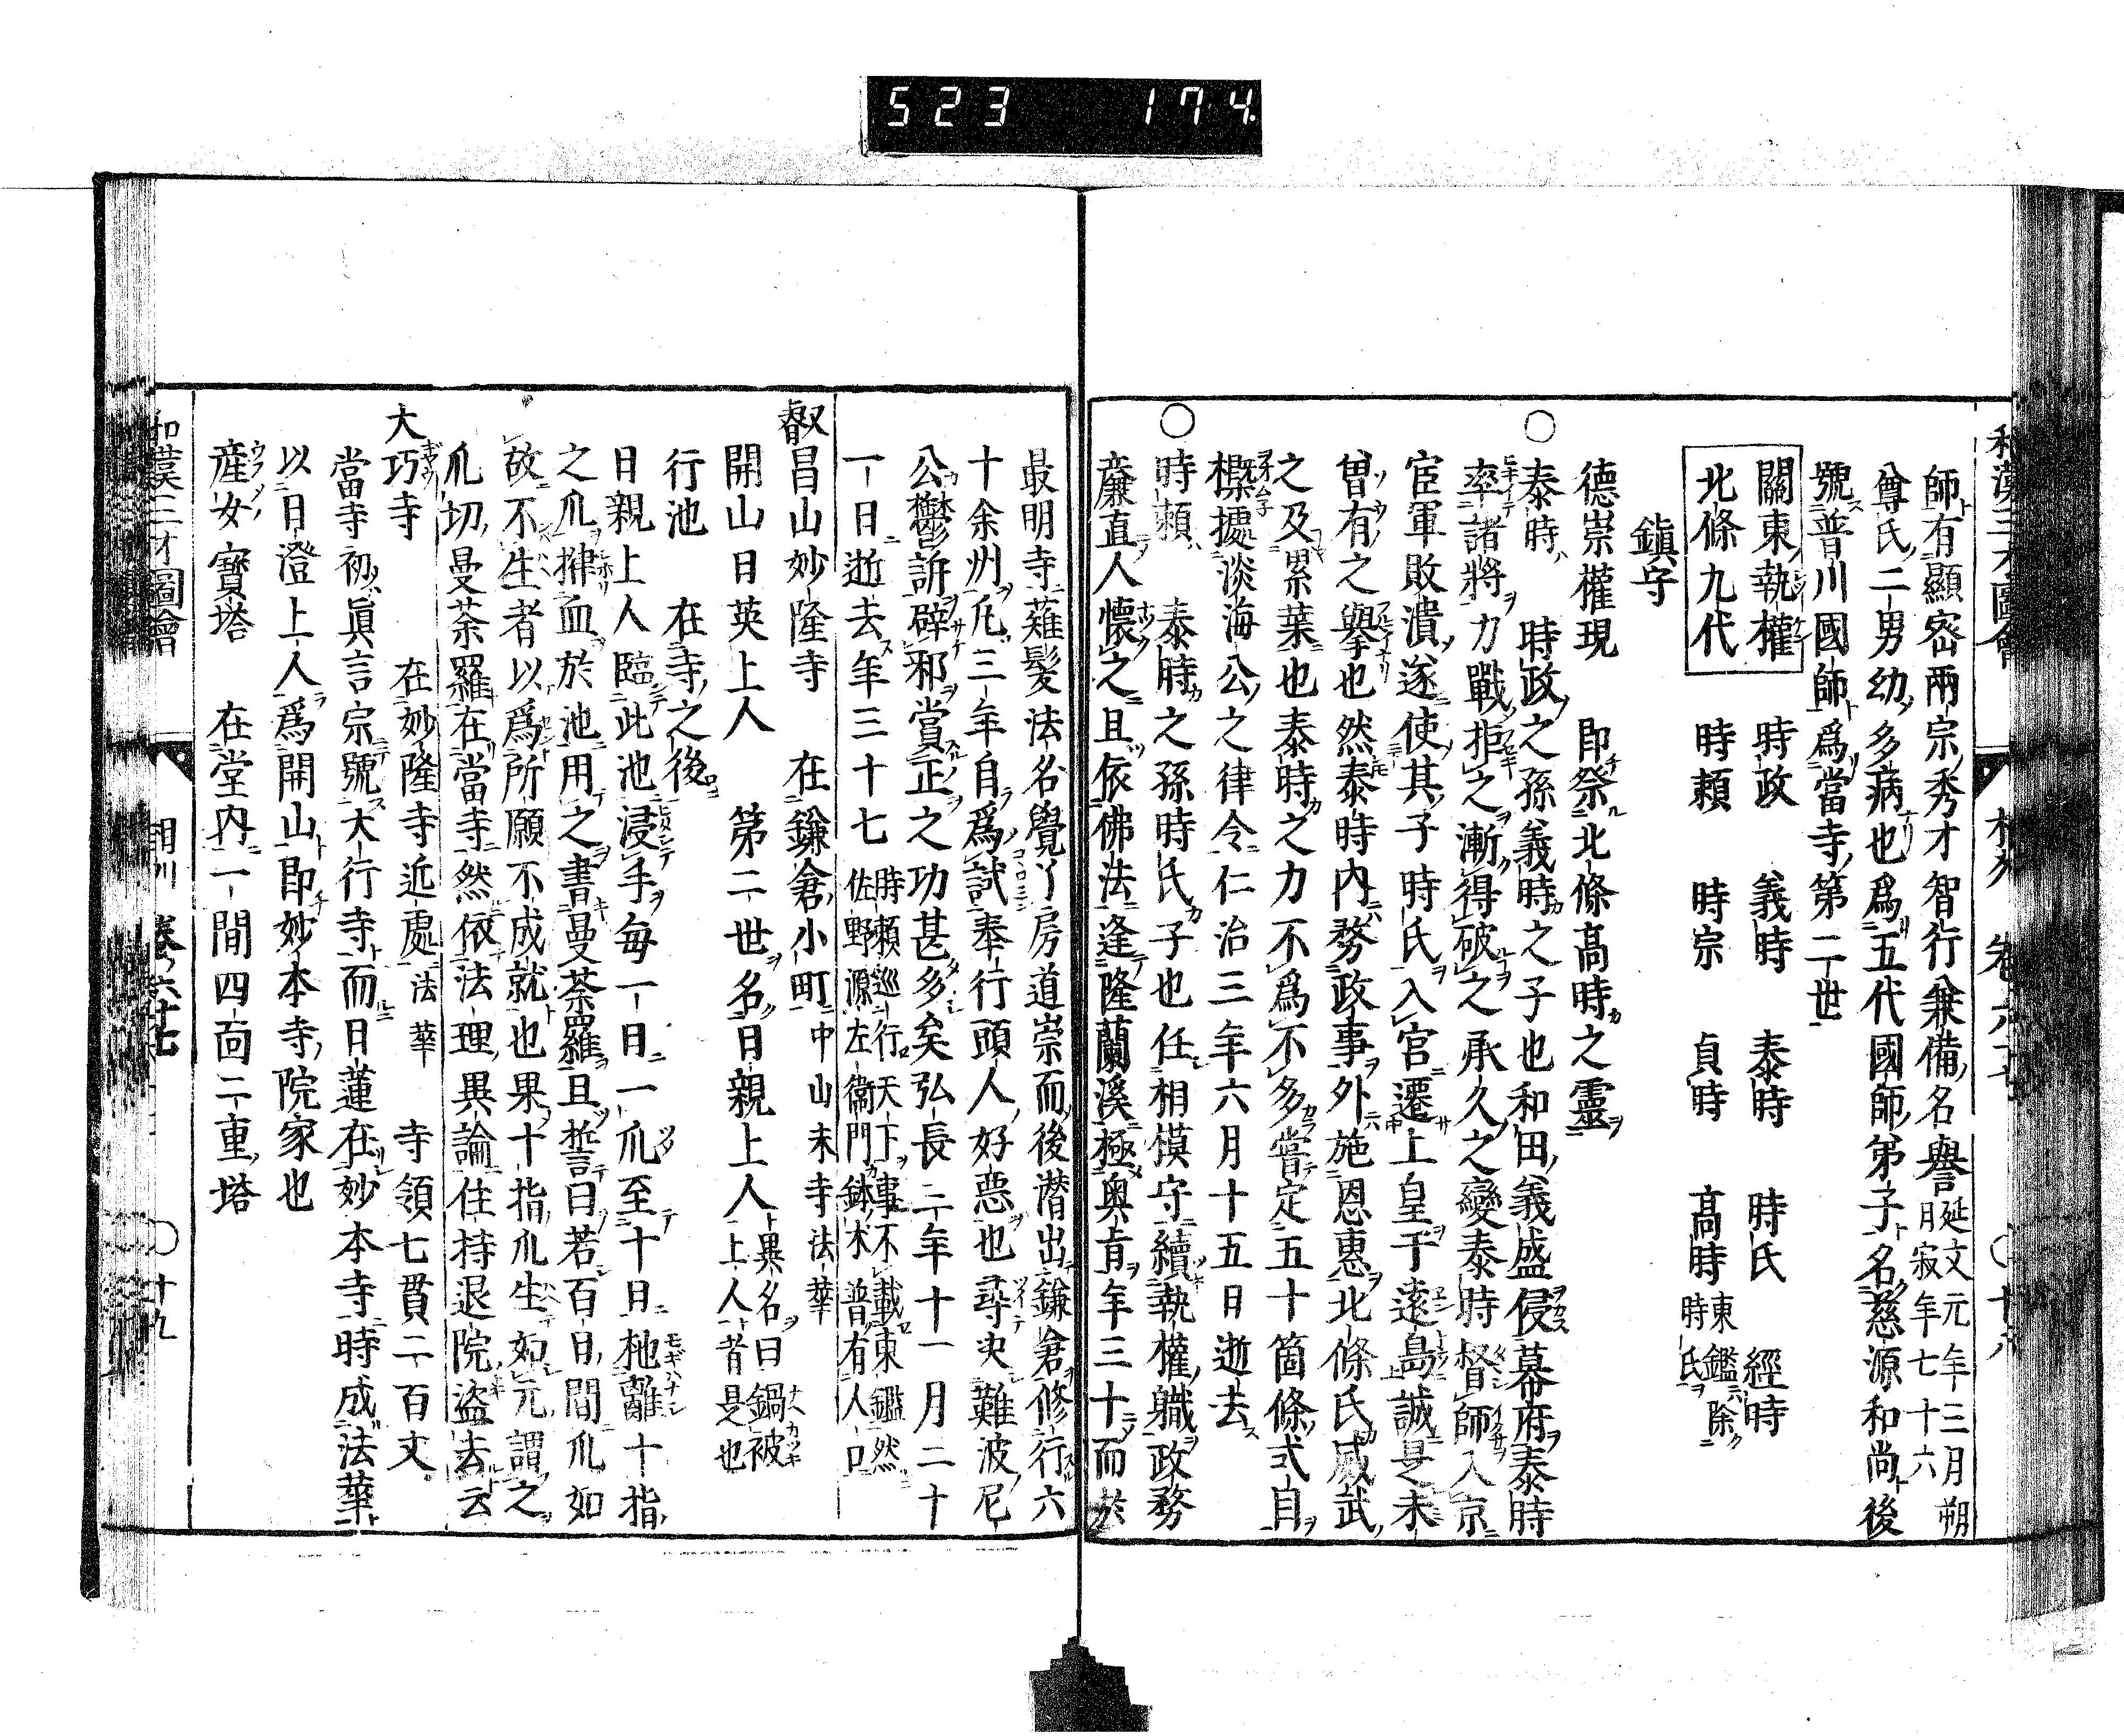 523 174
和漢三才圖會 相州 卷六十七 ○十八
師有顯宻兩宗秀才智行兼備名譽延文元年三月朔月寂年七十六
尊氏二男幼多病也爲五代國師弟子名慈源和尚後
號普川國師爲當寺第二世
關東執權 時政 義時 泰時 時氏 經時
北條九代 時頼 時宗 貞時 高時東鑑除時氏
鎮守
德崇權現 即祭北條高時之靈
○泰時 時政之孫義時之子也和田義盛侵幕府泰時
率諸將力戰拒之漸得破之承久之變泰時督師入京
官軍敗潰遂使其子時氏入官遷上皇于遠島誠是未
曽有之擧也然泰時内務政事外施恩惠北條氏威武
之及累葉也泰時之力不爲不多嘗定五十箇條式自
槩擬淡海公之律令仁治三年六月十五日逝去
○時頼 泰時之孫時氏子也任相模守續執權職政務
廉直人懷之且依佛法逢隆蘭溪極奥旨年三十而於
最明寺薙髪法名覺了房道崇而後潜出鎌倉修行六
十余州凡三年自爲試奉行頭人好惡也尋決難波尼
公鬱訴辟邪賞正之功甚多矣弘長二年十一月二十
一日逝去年三十七時頼巡行天下事不載東鑑然佐野源左衞門鉢木普有人口
叡昌山妙隆寺 在鎌倉小町中山末寺法華
開山日英上人 第二世名日親上人異名曰鍋被上人者是也
行池 在寺之後
日親上人臨此池浸手毎一日一爪至十日杝離十指
之爪揵血於池用之書曼荼羅且誓曰若百日間爪如
故不生者以爲所願不成就也果十指爪生如元謂之
爪切曼荼羅在當寺然依法理異論住持退院盗去云
大巧寺 在妙隆寺近處法華 寺領七貫二百文
當寺初眞言宗號大行寺而日蓮在妙本寺時成法華
以日澄上人爲開山即妙本寺院家也
産女寶塔 在堂内一間四面二重塔
和漢三才圖會 相州 卷六十七 ○十九